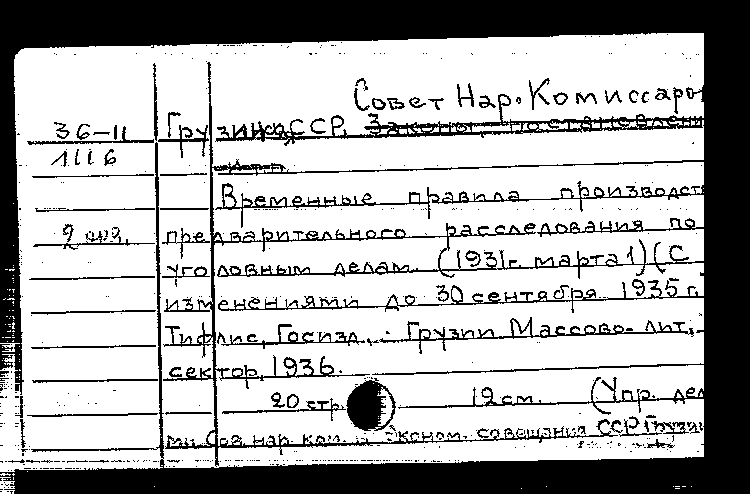 Совет Нар. Комиссаро
36-11 Грузинска ССР. Законы, постановлени
1116
Временные правила производст
2 экз. предварительного расследования по
уголовным делам. (1931г. марта 1) (С
изменениями до 30 сентября 1935 г.
Тифлис, Госизд. Грузии Массово- лит.
сектор, 1936.
20 стр. 12 см. (Упр. дел
ми Сов. нар. ком. и Эконом. совещания ССР Грузии